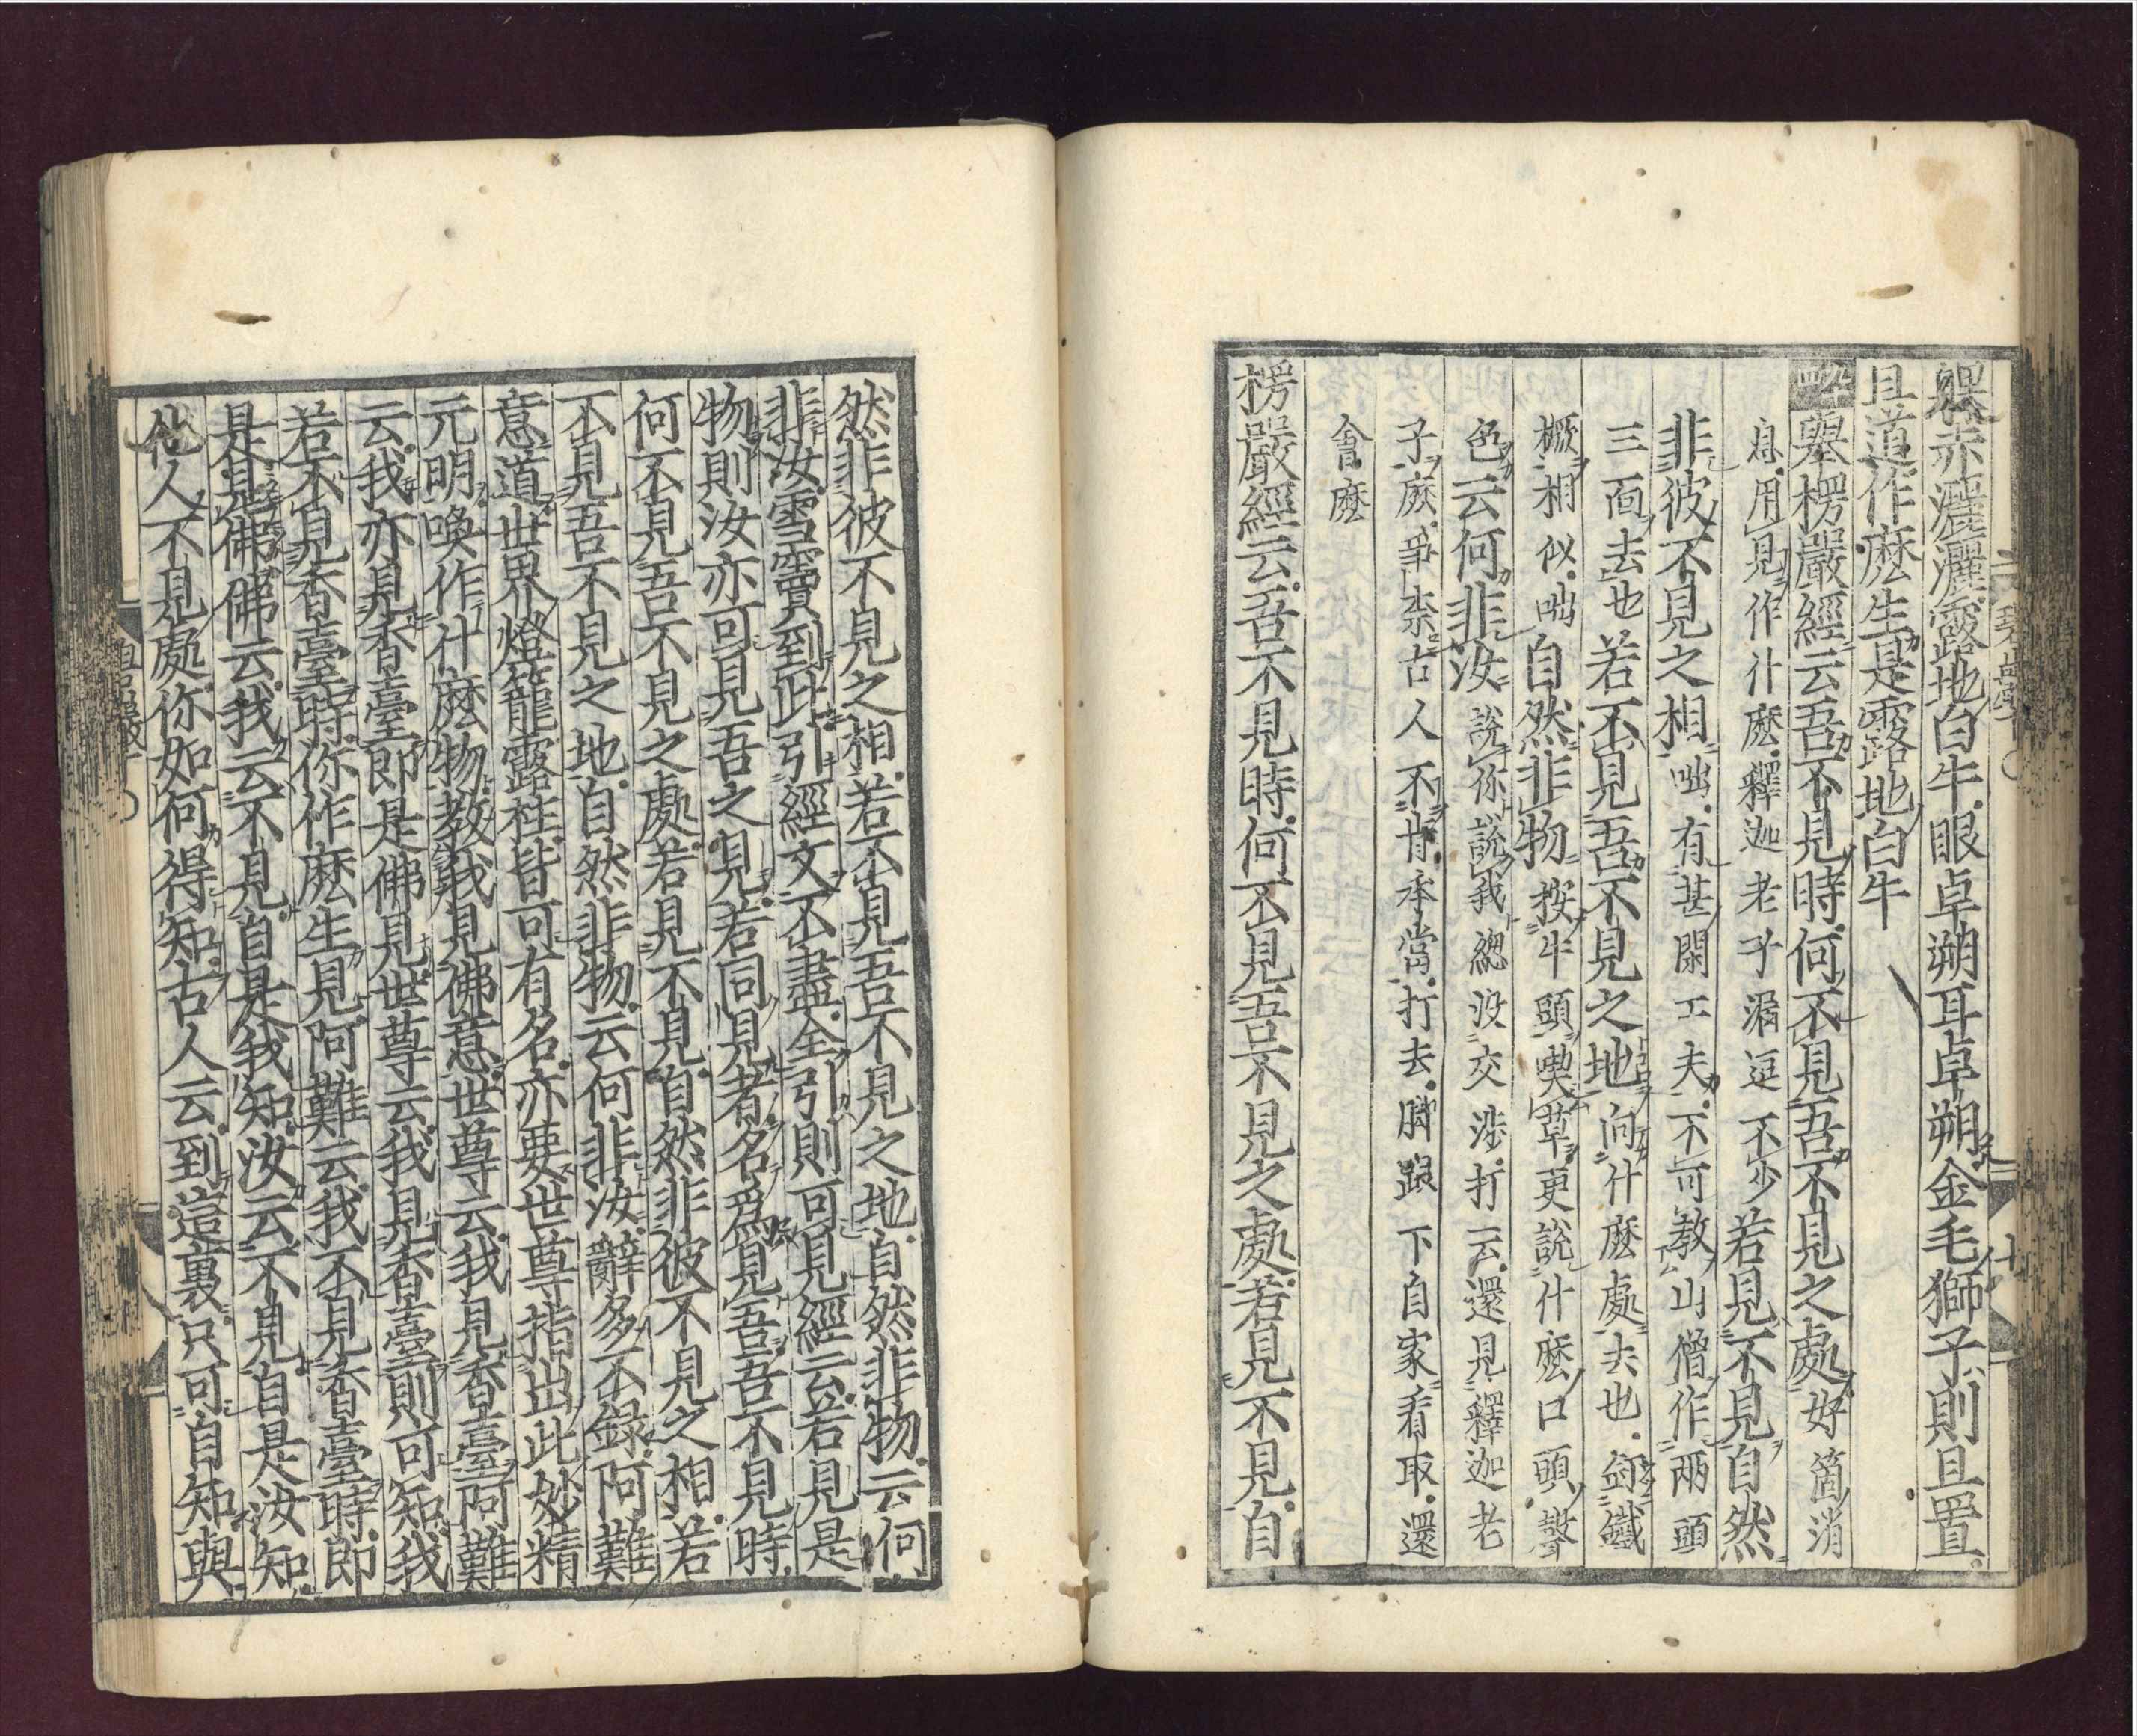 躶赤灑灑露地白牛眼卓朔耳卓朔金毛獅子則且置
且道作麽生是露地白牛
九四擧楞嚴經云吾不見時何不見吾不見之處好箇消
息用見作什麽釋迦老子漏逗不少若見不見自然
非彼不見之相咄有甚閑工夫不可教山僧作兩頭
三面去也若不見吾不見之地向什麽處去也釘鐵
橛相似咄自然非物按牛頭喫草更說什麽口頭聲
色云何非汝說你說我總沒交涉打云還見釋迦老
子麽爭柰古人不肯承當打去脚跟下自家看取還
會麽
楞嚴經云吾不見時何不見吾不見之處若見不見自
然非彼不見之相若不見吾不見之地自然非物云何
非汝雪竇到此引經文不盡全引則可見經云若見是
物則汝亦可見吾之見若同見者名爲見吾吾不見時
何不見吾不見之處若見不見自然非彼不見之相若
不見吾不見之地自然非物云何非汝辭多不錄阿難
意道世界燈籠露柱皆可有名亦要世尊指出此妙精
元明喚作什麽物教我見佛意世尊云我見香臺阿難
云我亦見香臺即是佛見世尊云我見香臺則可知我
若不見香臺時你作麽生見阿難云我不見香臺時即
是見佛佛云我云不見自是我知汝云不見自是汝知
他人不見處你如何得知古人云到這裏只可自知與